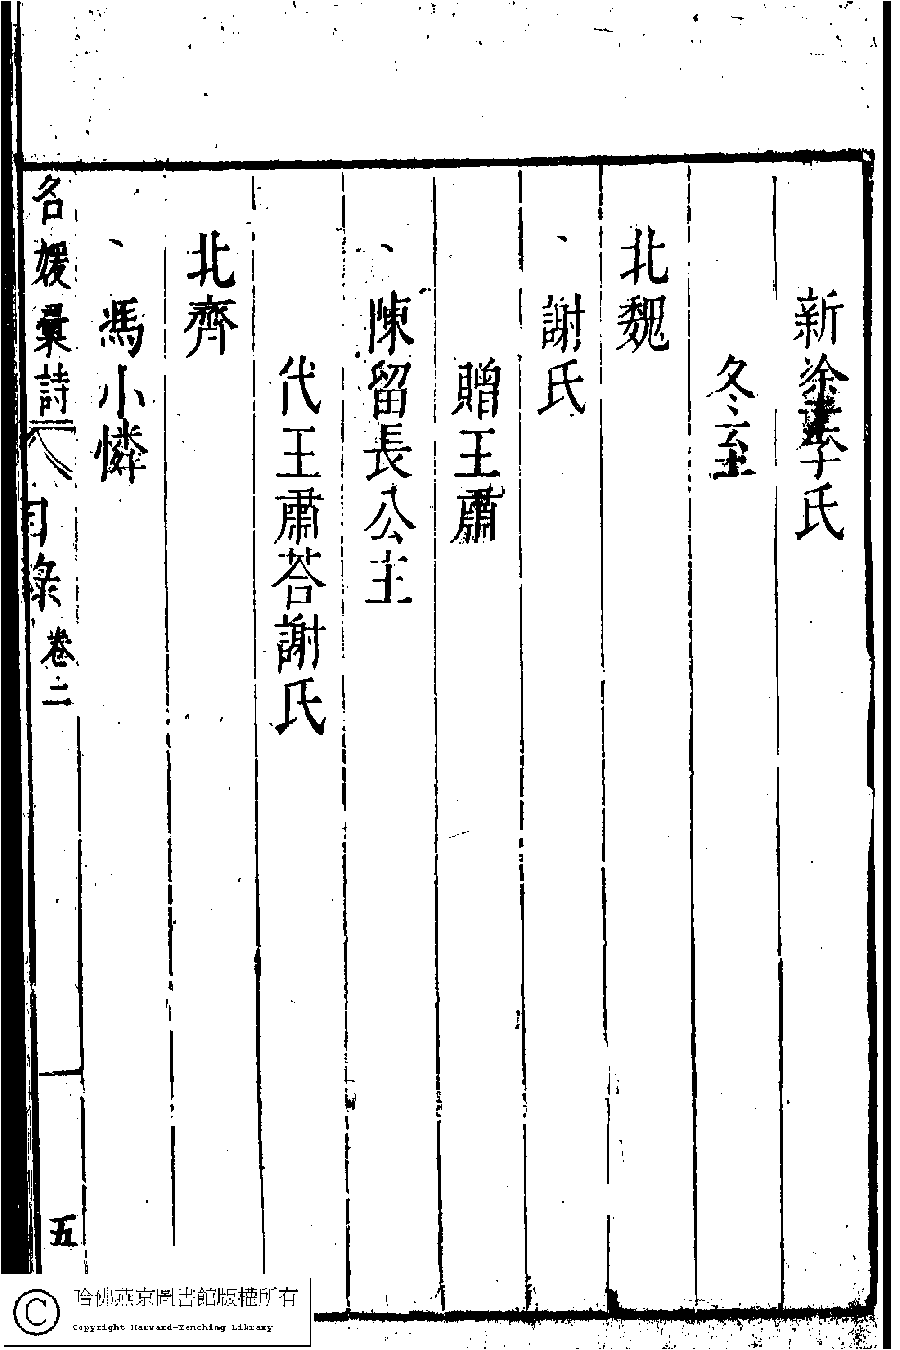 新涂妻李氏
冬至
北魏
謝氏
贈王肅
陳留長公主
代王肅荅謝氏
北齊
馮小憐
名媛彙詩 目錄 卷二 五
哈佛燕京圖書館版權所有
Copyright Harvard-Yenching Library